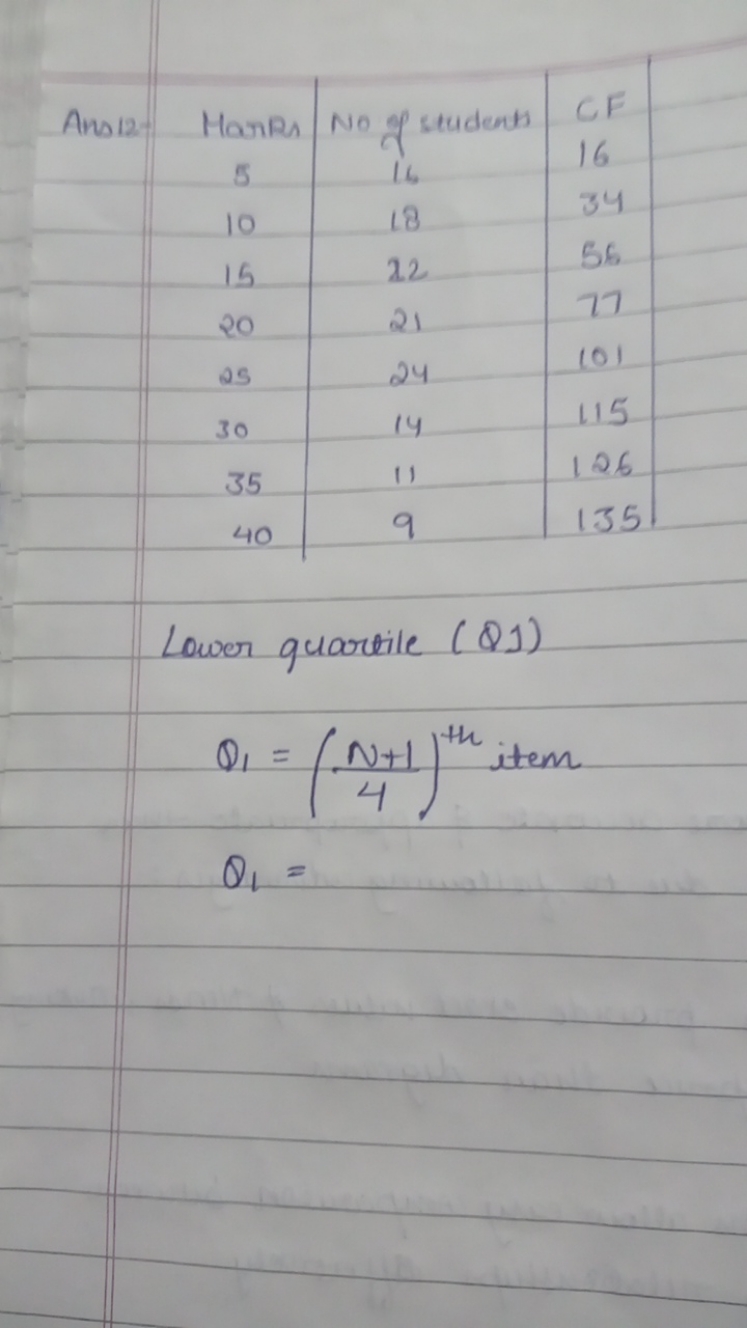 Ans12- Marks No of students CF
5 16 16
10 18 34
15 22 56
20 21 77
25 24 101
30 14 115
35 11 126
40 9 135
Lower quartile (Q1)
Q1 = (N+1/4)th item
Q1 =